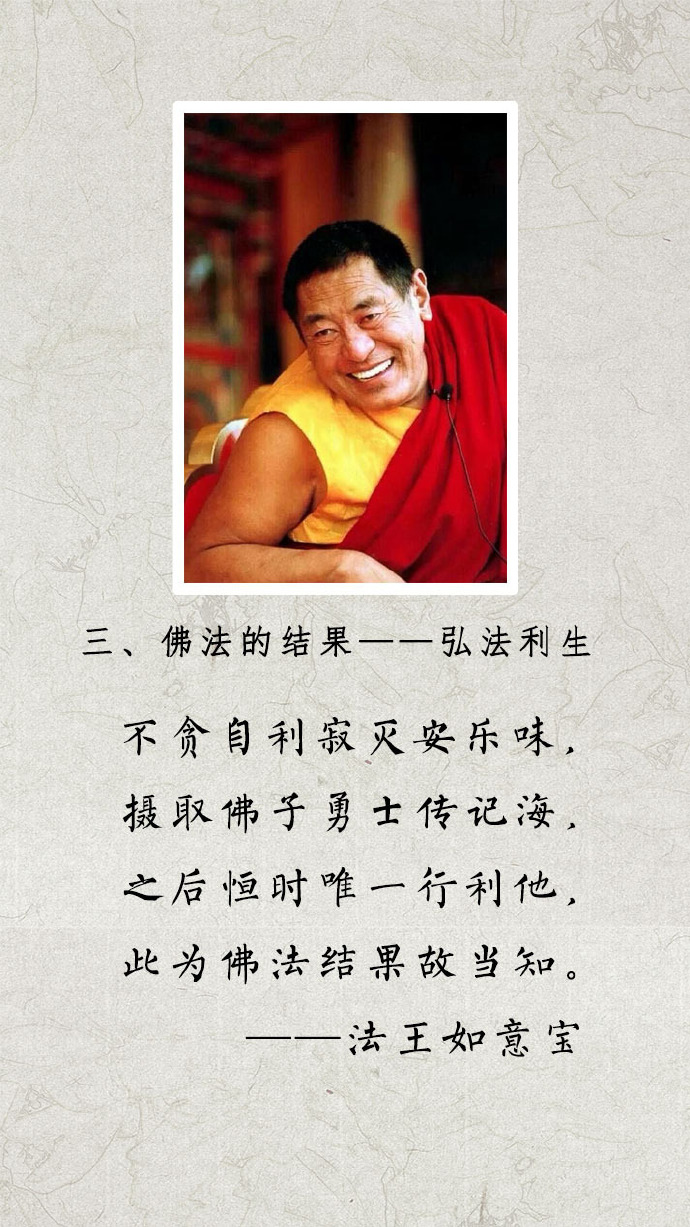 三、佛法的结果——弘法利生
不贪自利寂灭安乐味，
摄取佛子勇士传记海，
之后恒时唯一行利他，
此为佛法结果故当知。
——法王如意宝